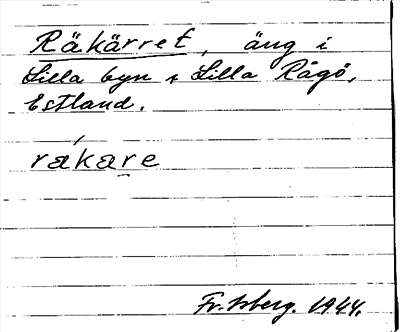 Räkärret, äng i
Lilla byn i Lilla Rågö,
Estland.
rákare
Fr. Isberg. 1944.